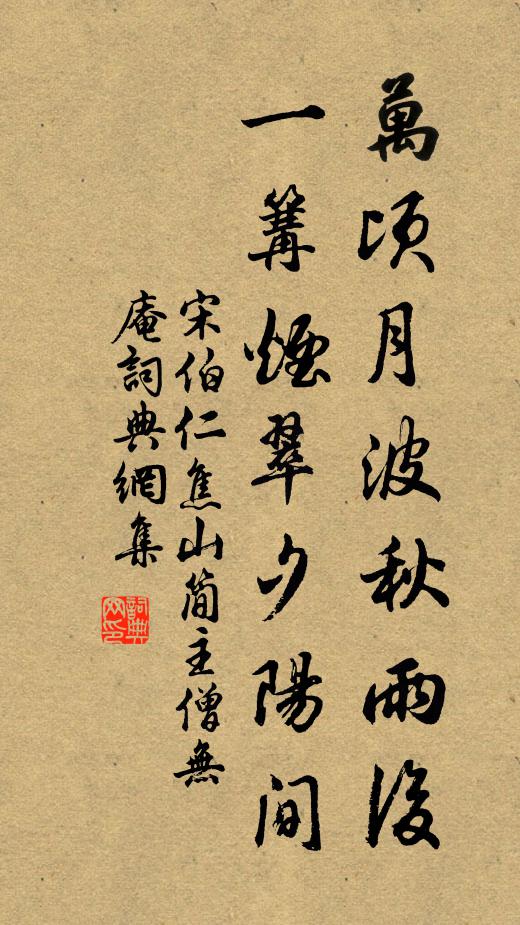 萬頃月波秋雨後
一篝煙翠夕陽間
宋伯仁焦山簡主僧無
庵詞典網集
詞典
网印